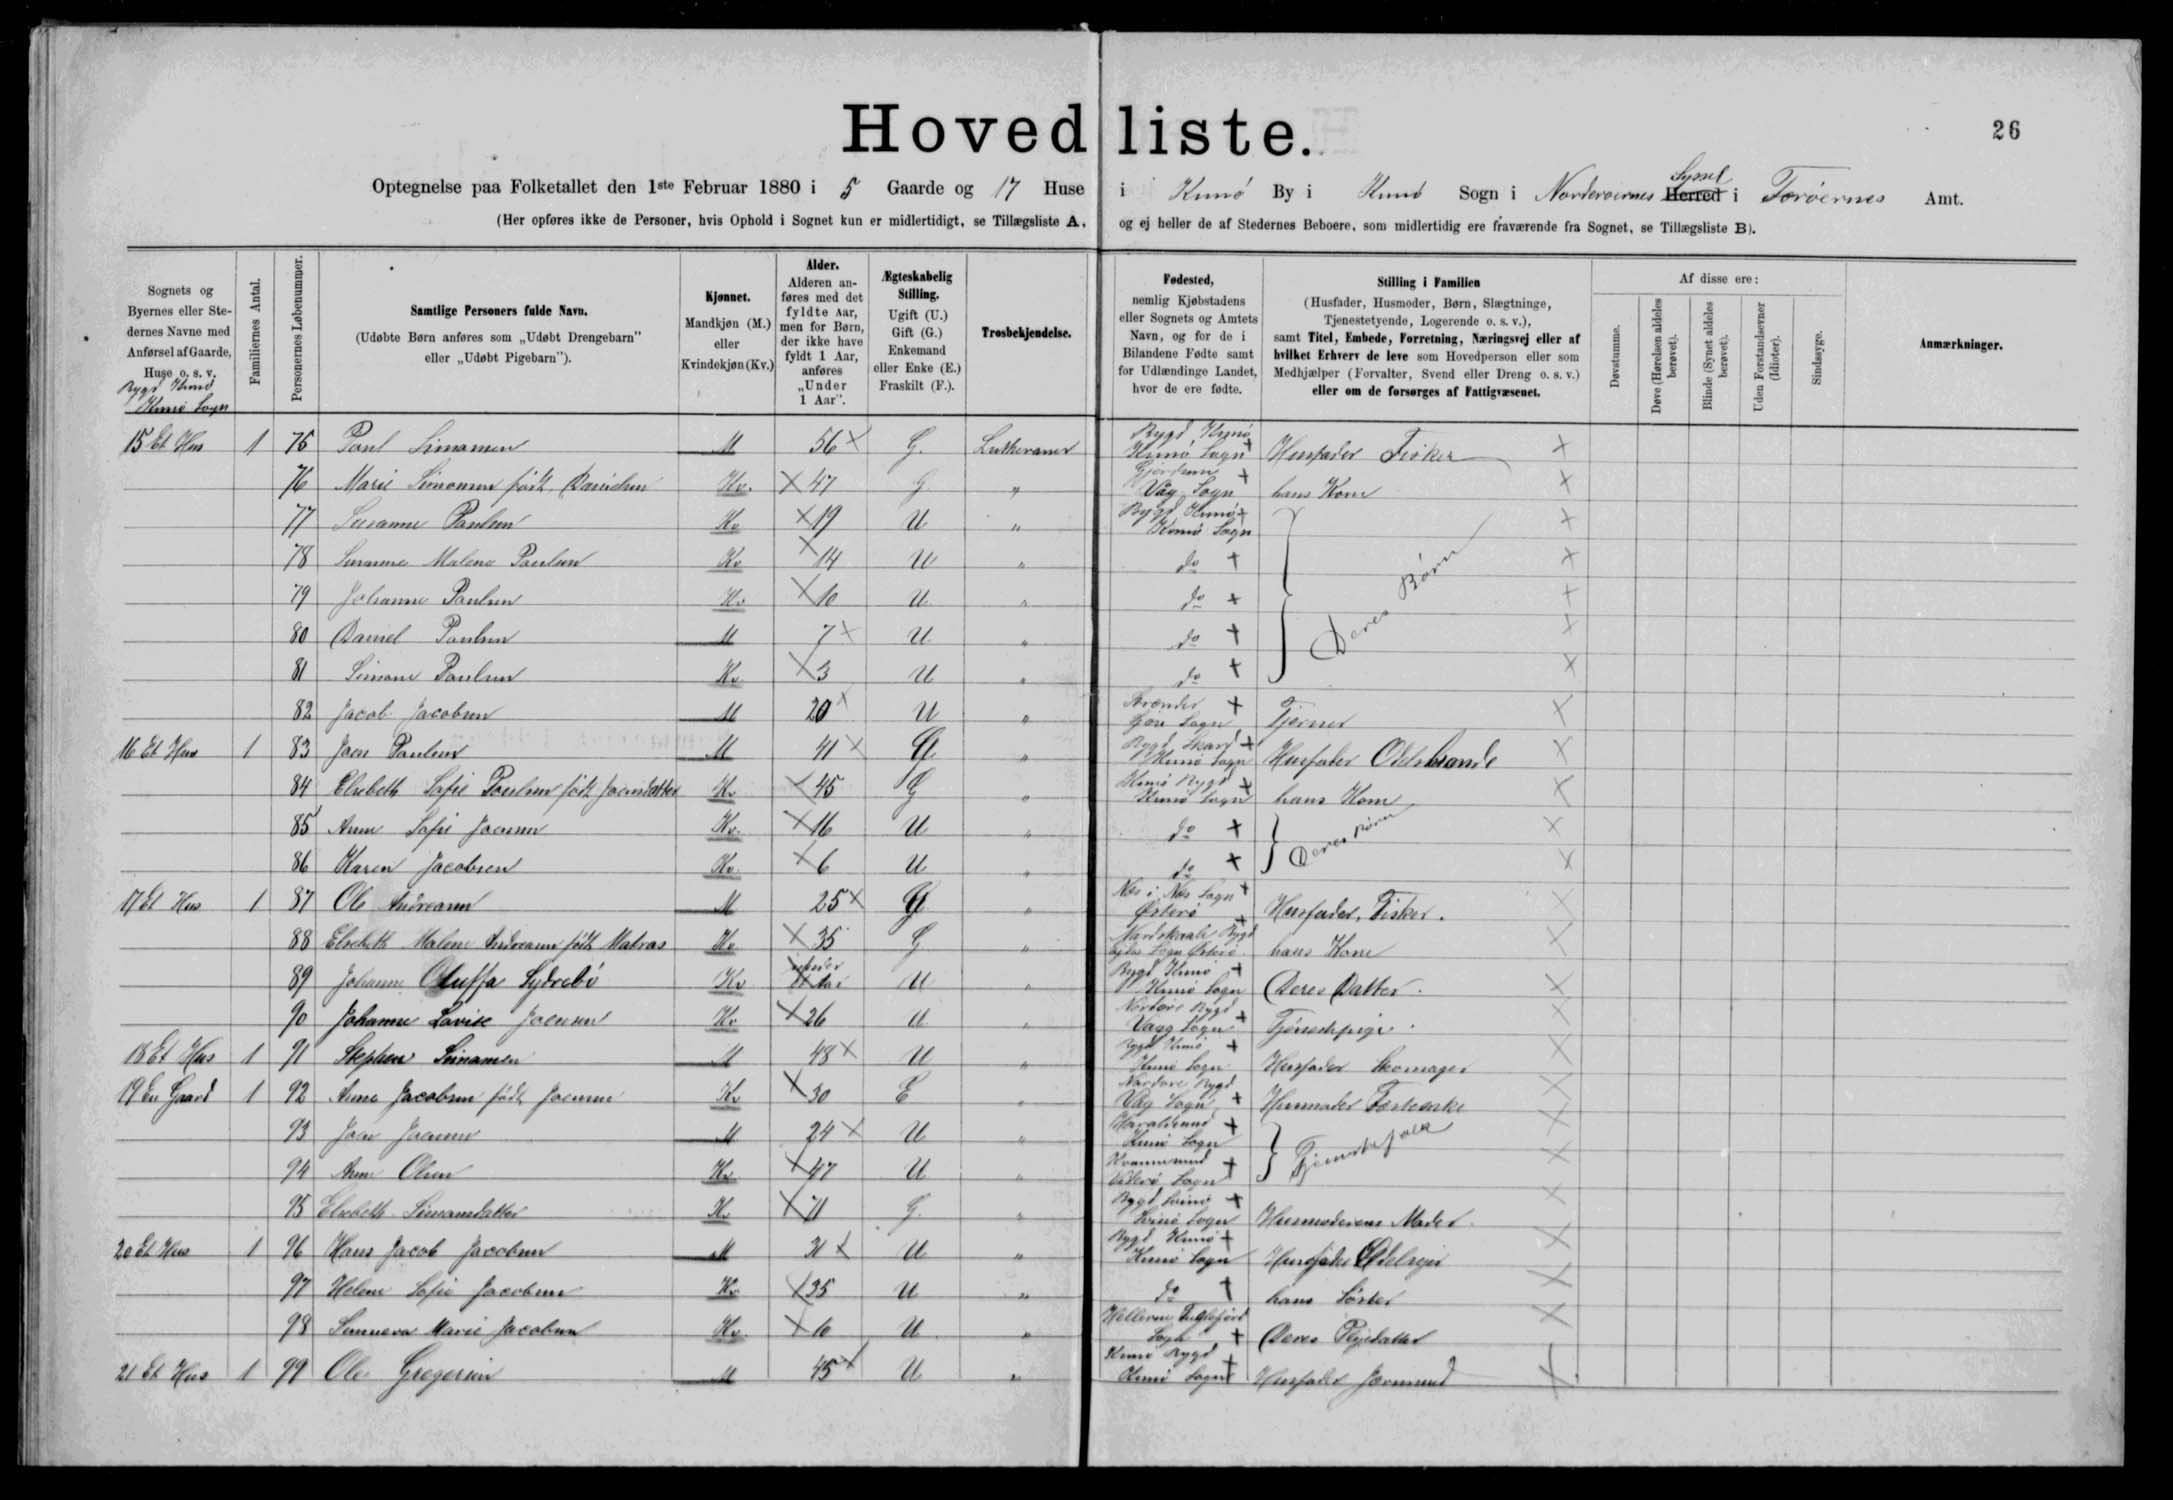 Hovedliste.
26
Optegnelse paa Folketallet den 1ste Februar 1880 i 5 Gaarde og 17 Huse i Kunö By i Kunö Sogn i Norderoernes Herred Syssel i Færöernes Amt.
(Her opføres ikke de Personer, hvis Ophold i Sognet kun er midlertidigt, se Tillægsliste A, og ej heller de af Stedernes Beboere, som midlertidig ere fraværende fra Sognet, se Tillægsliste B).
Sognets og Byernes eller Stedernes Navne med Anførsel af Gaarde, Huse o. s. v.
Familiernes Antal.
Personernes Løbenummer.
Samtlige Personers fulde Navn.
(Udøbte Børn anføres som „Udøbt Drengebarn" eller „Udøbt Pigebarn").
Kjønnet.
Mandkjøn (M.) eller Kvindekjøn (Kv.)
Alder.
Alderen anføres med det fyldte Aar, men for Børn, der ikke have fyldt 1 Aar, anføres „Under 1 Aar".
Ægteskabelig Stilling.
Ugift (U.) Gift (G.) Enkemand eller Enke (E.) Fraskilt (F.).
Trosbekjendelse.
Fødested,
nemlig Kjøbstadens eller Sognets og Amtets Navn, og for de i Bilandene Fødte samt for Udlændinge Landet, hvor de ere fødte.
Stilling i Familien
(Husfader, Husmoder, Børn, Slægtninge, Tjenestetyende, Logerende o. s. v.),
samt Titel, Embede, Forretning, Næringsvej eller af hvilket Erhverv de leve som Hovedperson eller som Medhjælper (Forvalter, Svend eller Dreng o. s. v.) eller om de forsørges af Fattigvæsenet.
Af disse ere:
Døvstumme.
Døve (Hørelsen aldeles berøvet).
Blinde (Synet aldeles berøvet).
Uden Forstandsevner (Idioter).
Sindssyge.
Anmærkninger.
Bygd Kunö
Kunö Sogn
15 Et Hus 1 75 Poul Simonsen M 56 G. Lutheraner Bygd Kunö Kunö Sogn Husfader Fisker
76 Marie Simonsen født Danielsen Kv. 47 G " Vaag Sogn hans Kone
77 Susanne Poulsen Kv 19 U " Bygd Kunö Kunö Sogn
78 Sunneva Malene Poulsen Kv 14 U " do
79 Johanne Poulsen Kv 10 U " do Deres Børn
80 Daniel Poulsen M 7 U " do
81 Simone Poulsen Kv 3 U " do
82 Jacob Jacobsen M 20 U " Sogn Tjener
16 Et Hus 1 83 Joen Poulsen M 41 G " Bygd Skard Kunö Sogn Husfader Odelsbonde
84 Elsebeth Sofie Poulsen født Joensdatter Kv 45 G " Kunö Bygd Kunö Sogn hans Kone
85 Anne Sofie Joensen Kv. 16 U " do Deres Börn
86 Karen Jacobsen Kv. 6 U " do
17 Et Hus 1 87 Ole Andreasen M 25 G " Næs i Næs Sogn Østerö Husfader, Fisker.
88 Elsebeth Malene Andreasen født Matras Kv 35 G " Bygd Sogn Østerö hans Kone
89 Johanne Oluffa Sydrebö Kv under 1 Aar U " Bygd Kunö Kunö Sogn Deres Datter.
90 Johanne Lovise Joensen Kv 26 U " Nordøre Bygd Vaag Sogn Tjenestepige.
18 Et Hus 1 91 Stephen Simonsen M 48 U " Bygd Kunö Kunö Sogn Husfader Skomager
19 En Gaard 1 92 Anna Jacobsen født Joensen Kv 30 E " Nordøre Bygd Vaag Sogn Husmoder Fæsteenke
93 Joen Joensen M 24 U " Haraldsund Kunö Sogn Tjenestefolk
94 Anne Olsen Kv 47 U " Kvannesund Viderö Sogn
95 Elsebeth Simonsdatter Kv 71 G. " Bygd Svinö Svinö Sogn Husmoderens Moder.
20 Et Hus 1 96 Hans Jacob Jacobsen M 31 U " Bygd Kunö Kunö Sogn Husfader Odelsejer
97 Helene Sofie Jacobsen Kv 35 U " do hans Söster
98 Sunneva Marie Jacobsen Kv 10 U " Sogn Deres Plejedatter
21 Et Hus 1 99 Ole Gregersen M 45 U " Kunö Bygd Kunö Sogn Husfader